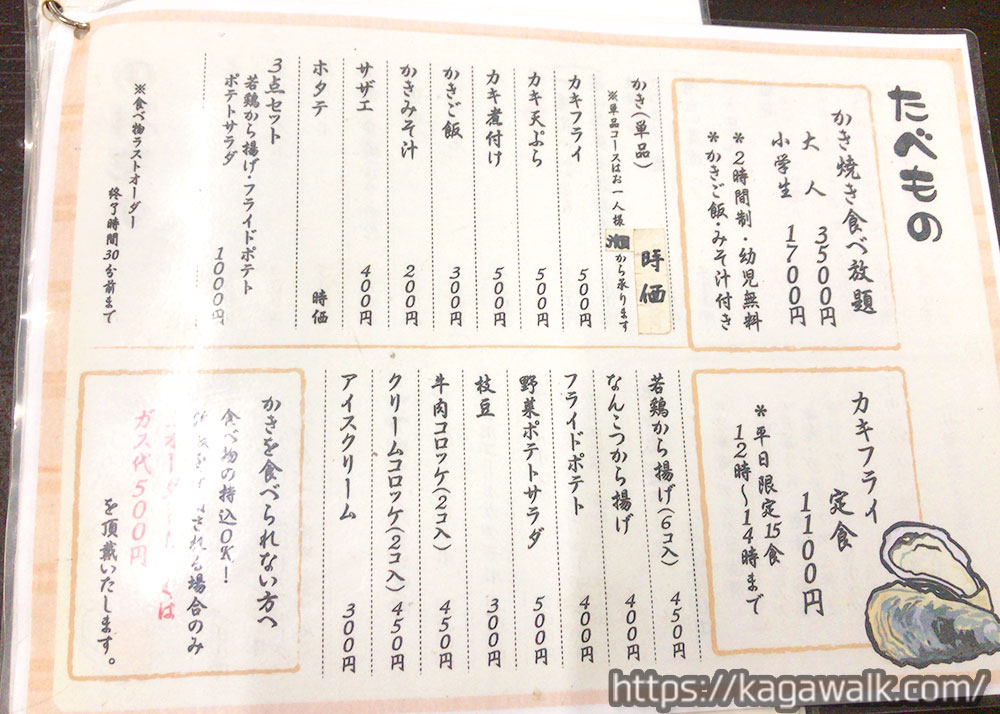 たべもの
かき焼き食べ放題
大人 3500円
小学生 1700円
＊2時間制・幼児無料
＊かきご飯・みそ汁付き
かき(単品) 時価
※単品コースはお一人様
から承ります
カキフライ 500円
カキ天ぷら 500円
カキ煮付け 500円
かきご飯 300円
かきみそ汁 200円
サザエ 400円
ホタテ 時価
3点セット
若鶏から揚げ・フライドポテト
ポテトサラダ 1000円
※食べ物ラストオーダー
終了時間30分前まで
カキフライ
定食
1100円
＊平日限定15食
12時〜14時まで
若鶏から揚げ(6コ入) 450円
なんこつから揚げ 400円
フライドポテト 400円
野菜ポテトサラダ 500円
枝豆 300円
牛肉コロッケ(2コ入) 450円
クリームコロッケ(2コ入) 450円
アイスクリーム 300円
かきを食べられない方へ
食べ物の持込OK!
される場合のみ
オーダー
くは
ガス代500円
を頂戴いたします。
https://kagawalk.com/